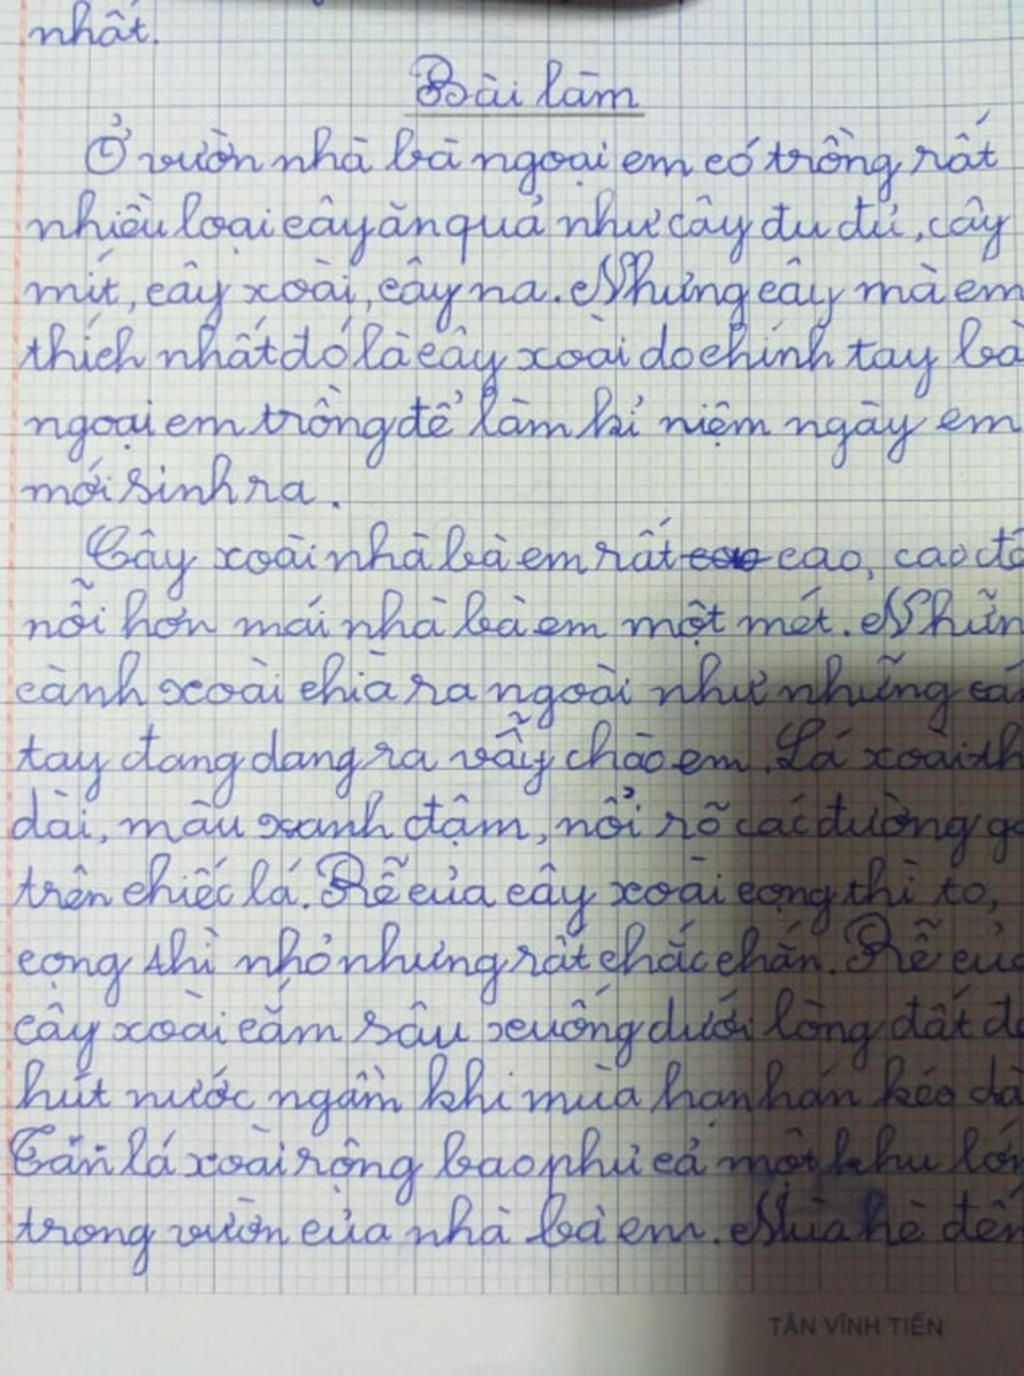 nhất.
Bài làm
Ở vườn nhà bà ngoại em có trồng rất
nhiều loại cây ăn quả như cây đu đủ, cây
mít, cây xoài, cây na. Nhưng cây mà em
thích nhất đó là cây xoài do chính tay bà
ngoại em trồng để làm kỉ niệm ngày em
mới sinh ra.
Cây xoài nhà bà em rất cao, cao
nỗi hơn mái nhà bà em một mét.
cành xoài chìa ra ngoài như những
tay đang dang ra vẫy chào em. Lá xoài
dài, màu xanh đậm, nổi rõ các đường
trên chiếc lá. Rễ của cây xoài cọng thì to,
cọng thì nhỏ nhưng rất chắc chắn. Rễ
cây xoài cắm sâu xuống dưới lòng đất
hút nước ngầm khi mùa hạn hán kéo
Tán lá xoài rộng bao phủ cả một khu
trong vườn của nhà bà em. Mùa hè
TÂN VĨNH TIẾN